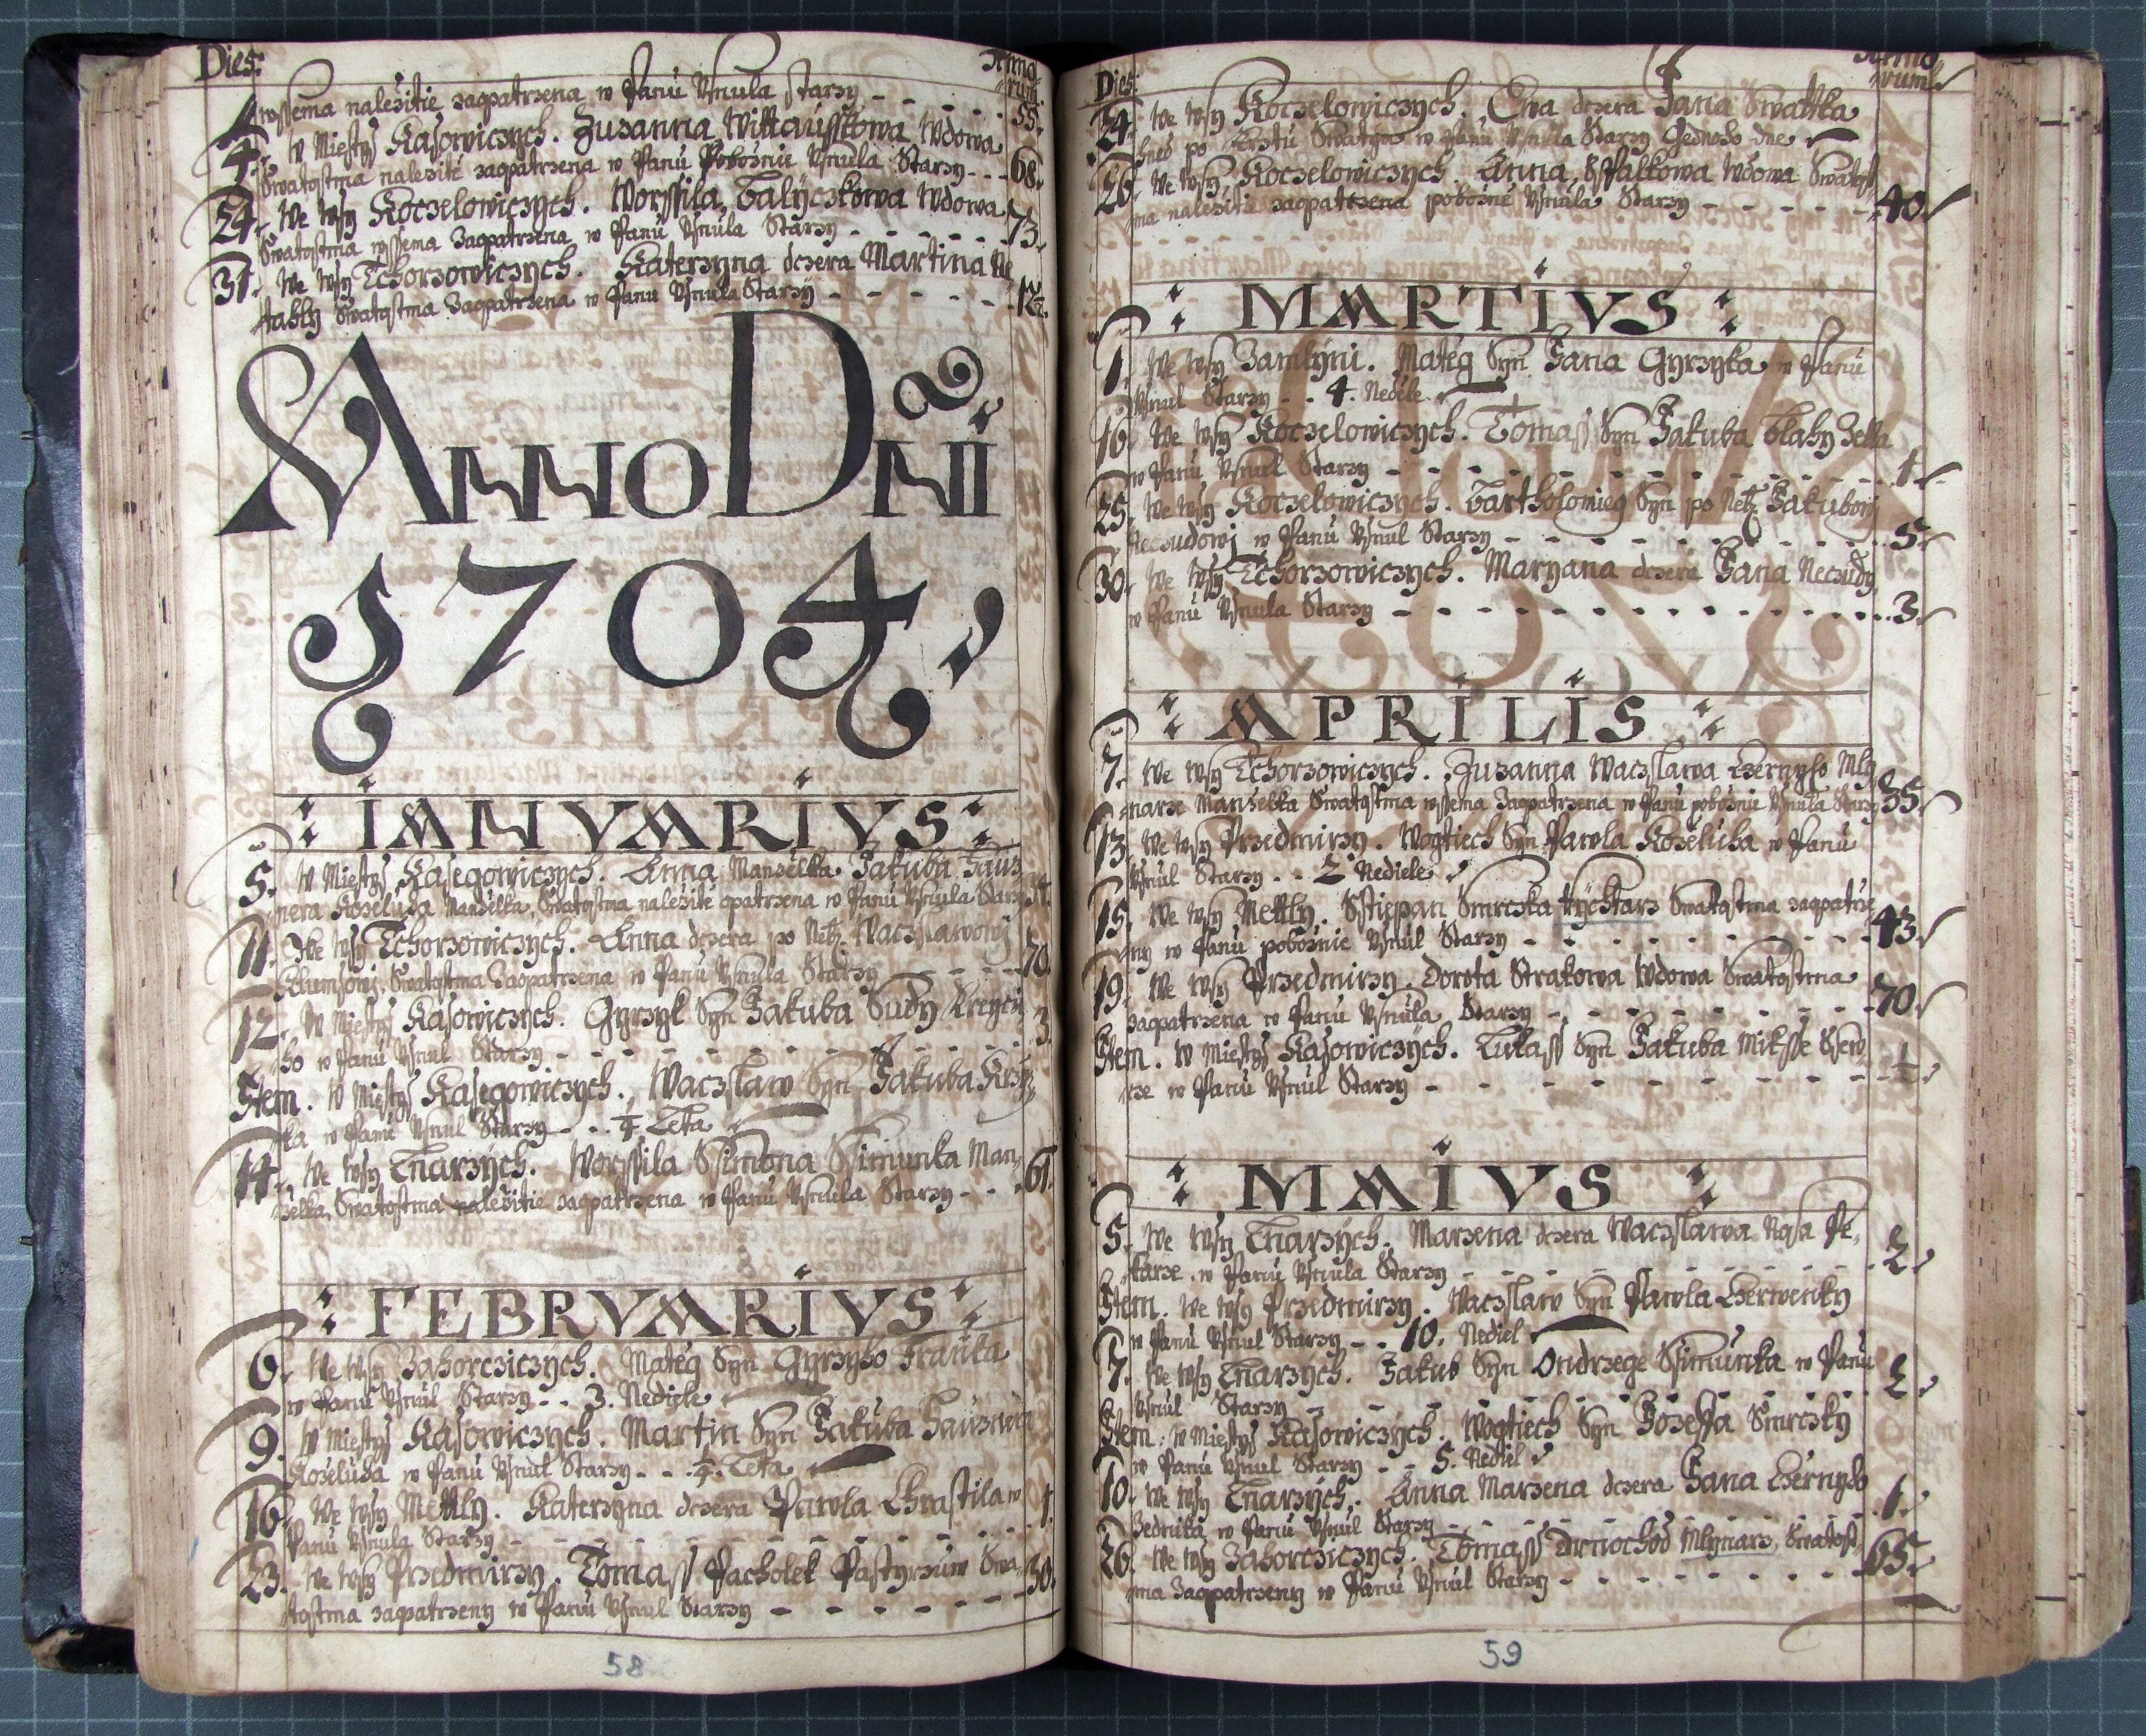 Dies: Anno-
rum.
wssema nalezitie zaopatrzena w Panu Vsnula starzy - - - - 55.
4. W Miestys Kasowiczych. Zuzanna Wdowa
Swatostma nalezite zaopatrzena w Panu Pobožnie Vsnula Starzy - - - 68.
24. We wsy Koczelowiczych. Worssila Wdowa
Swatostma wssema Zaopatrzena w Panu Vsnula Starzy - - - - - - 73.
31. We wsy Tchorzowiczych. Katerzyna dczera Martina Ne
Swatostma Zaopatrzena w Panu Vsnula Starzy - - - - - - 12.
ANNO DÑI
1704,
: IANVARIVS :
5. W Miestys Kasegowiczych. Anna Manželka Jakuba Hauz
nera Koželuha Manželka, Swatostma nalezité opatrzena w Panu Vsnula Starzy
11. We wsy Tchorzowiczych. Anna dczera po Neb. Waczslawowj
Swatostma Zaopatrzena w Panu Vsnula Starzy - - - - 70.
12. W Miestys Kasowiczych. Gyrzyk Syn Jakuba Sudy Kreyczi
ho w Panu Vsnul Starzy - - - - - - 3.
Item. W Miestys Kasegowiczych., Waczslaw Syn Jakuba
ka w Panu Vsnul Starzy - - . Leta
14. We wsy Lnarzych. Worssila Ssimona Ssimunka Man,
želka, Swatostma nalezitie zaopatrzena w Panu Vsnula Starzy - - . 61.
: FEBRVARIVS :
6. We wsy Zahorcziczych. Matěg Syn Gyrzyho Franka
w Panu Vsnul Starzy - - 3. Nediele
9. W Miestys Kasowiczych. Martin Syn Jakuba Hauznera
Koželuha w Panu Vsnul Starzy - - . Leta
16. We wsy Mettly. Katerzyna dczera Pawla Chrastila w
Panu Vsnula Starzy - - - - - - 1.
23. We wsy Przedmirzy. Tomass Pacholek Pastyrzuw Swa-
tostma zaopatrzeny w Panu Vsnul Starzy - - - - - - 30.
58
Dies: Anno-
rum.
24. We wsy Koczelowiczych. Ewa dczera Jana Swatka
hned po Krztu Swatym w Panu Vsnula Starzy Gednoho dne
26. We wsy Koczelowiczych. Anna Sspalkowa Wdowa Swatost
ma nalezitě zaopatrzena pobožnie Vsnula Starzy - - - - - 40.
: MARTIVS :
1. We wsy Zamlyni. Matěg Syn Jana Gyrzyka w Panu
Vsnul Starzy - - 4. Neděle.
16. We wsy Koczelowiczych. Tomass Syn Jakuba Blahy
w Panu Vsnul Starzy - - - - - - 1.
25. We wsy Koczelowiczych. Bartholomieg Syn po Neb. Jakubowi
Neczudowj w Panu Vsnul Starzy - - - - - - 5.
30. We wsy Tchorzowiczych. Maryana dczera Jana Neczudy
w Panu Vsnula Starzy - - - - - - 3.
: APRILIS :
7. We wsy Tchorzowiczych. Zuzanna Waczslawa Czernyho Mly
narze Manželka Swatostma wssema Zaopatrzena w Panu pobožnie Vsnula Starzy 35.
13. We wsy Przedmirzy. Wogtiech Syn Pawla Koželuha w Panu
Vsnul Starzy - - 2 Nediele
15. We wsy Mettly. Sstiepan Smrczka Rychtarz Swatostma zaopatrze
ny w Panu pobožnie Vsnul Starzy - - - - - - 43.
19. We wsy Przedmirzy. Dorota Strakowa Wdowa Swatostma
zaopatrzena w Panu Vsnula Starzy - - - - - - 70.
Item. W Miestys Kasowiczych. Lukass Syn Jakuba Miksse Ssew
cze w Panu Vsnul Starzy - - - - - -
: MAIVS :
5. We wsy Lnarzych. Marzena dczera Waczslawa Pe,
karze w Panu Vsnula Starzy - - - - - - 2.
Item. We wsy Przedmirzy. Waczslaw Syn Pawla Czerwenky
w Panu Vsnul Starzy - - 10. Nediel
7. We wsy Lnarzych. Jakub Syn Ondrzege Ssimunka w Panu
Vsnul Starzy - - - - - - 2.
Item. W Miestys Kasowiczych. Wogtiech Syn Jozeffa Smrczky
w Panu Vsnul Starzy - - 5. Nediel
10. We wsy Lnarzych. Anna Marzena dczera Jana Czernyho
Zednika w Panu Vsnul Starzy - - - - - - 1.
26. We wsy Zahorcziczych. Tomass Mlynarz Swatost,
ma Zaopatrzeny w Panu Vsnul Starzy - - - - - - 65.
59